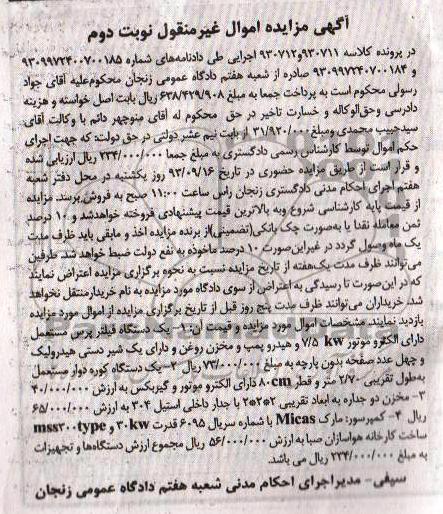 آگهی مزایده اموال غیرمنقول نوبت دوم
در پرونده کلاسه ۹۳۰۷۱۱و۹۳۰۷۱۲ اجرایی طی دادنامه‌های شماره ۹۳۰۹۹۷۲۴۰۰۷۰۰۱۸۵
و ۹۳۰۹۹۷۲۴۰۷۰۰۱۸۴ صادره از شعبه هفتم دادگاه عمومی زنجان محکوم‌علیه آقای جواد
رسولی محکوم است به پرداخت جمعا به مبلغ ۶۳۸/۴۲۹/۹۰۸ ریال بابت اصل خواسته و هزینه
دادرسی وحق‌الوکاله و خسارت تاخیر در حق محکوم له آقای منوچهر دائم با وکالت آقای
سیدحبیب محمدی ومبلغ ۳۱/۹۲۰/۰۰۰ از بابت نیم عشر دولتی در حق دولت: که جهت اجرای
حکم اموال توسط کارشناس رسمی دادگستری به مبلغ جمعا ۲۳۴/۰۰۰/۰۰۰ ریال ارزیابی شده
و قرار است از طریق مزایده حضوری در تاریخ ۹۳/۰۹/۱۶ روز یکشنبه در محل دفتر شعبه
هفتم اجرای احکام مدنی دادگستری زنجان راس ساعت ۱۱:۰۰ صبح به فروش برسد. مزایده
از قیمت پایه کارشناسی شروع وبه بالاترین قیمت پیشنهادی فروخته خواهدشد و ۱۰ درصد
ثمن معامله نقدا یا به‌صورت چک بانکی(تضمینی)از برنده مزایده اخذ و مابقی باید ظرف مدت
یک ماه وصول گردد در غیراین‌صورت ۱۰ درصد ماخوذه به نفع دولت ضبط خواهد شد. طرفین
می‌توانند ظرف مدت یک‌هفته از تاریخ مزایده نسبت به نحوه برگزاری مزایده اعتراض نمایند
که در این‌صورت تا رسیدگی به اعتراض از سوی دادگاه مورد مزایده به نام خریدارمنتقل نخواهد
شد. خریداران می‌توانند ظرف مدت پنج روز قبل از تاریخ برگزاری مزایده از اموال مورد مزایده
بازدید نمایند. مشخصات اموال مورد مزایده و قیمت آن: ۱- یک دستگاه فیلتر پرس مستعمل
دارای الکترو موتور ۷/۵ kw و هیدرو پمپ و مخزن روغن و دارای یک شیر دستی هیدرولیک
و چهل عدد صفحه بدون پارچه به مبلغ ۷۳/۰۰۰/۰۰۰ ریال ۲- یک دستگاه کوره دوار مستعمل
به‌طول تقریبی ۲/۷۰ متر و قطر ۸۰cm دارای الکترو موتور و گیربکس به ارزش ۴۰/۰۰۰/۰۰۰
۳- مخزن دو جداره به ابعاد تقریبی ۲*۲*۲ با جدار داخلی استیل ۳۰۴ به ارزش ۶۵/۰۰۰/۰۰۰
ریال ۴- کمپرسور: مارک Micas با شماره سریال ۶۰۹۵ قدرت ۳۰kw و mss۳۰۰type
ساخت کارخانه هواسازان صبا به ارزش ۵۶/۰۰۰/۰۰۰ ریال مجموع ارزش دستگاه‌ها و تجهیزات
به مبلغ ۲۳۴/۰۰۰/۰۰۰ ریال می باشد.
سیفی- مدیراجرای احکام مدنی شعبه هفتم دادگاه عمومی زنجان